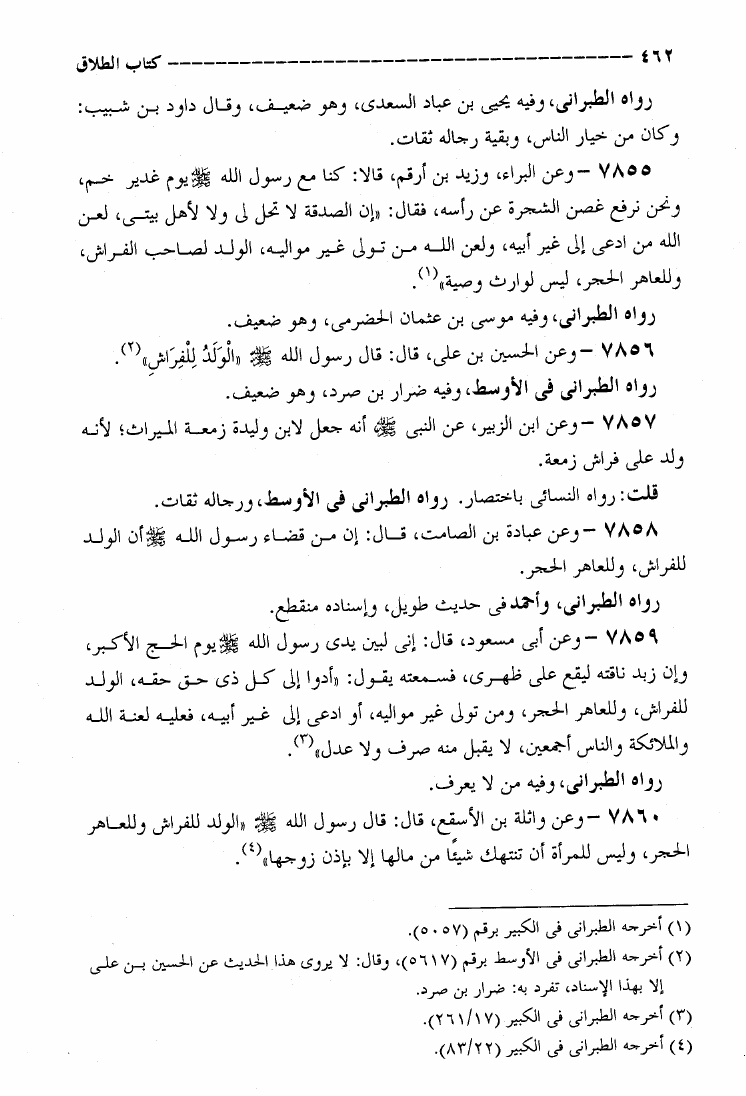 ٤٦٢ ------------------------------------------ كتاب الطلاق
رواه الطبرانى، وفيه يحيى بن عباد السعدى، وهو ضعيف، وقال داود بن شبيب:
وكان من خيار الناس، وبقية رجاله ثقات.
٧٨٥٥ – وعن البراء، وزيد بن أرقم، قالا: كنا مع رسول الله ﷺ يوم غدير خم،
ونحن نرفع غصن الشجرة عن رأسه، فقال: «إن الصدقة لا تحل لى ولا لأهل بيتى، لعن
الله من ادعى إلى غير أبيه، ولعن الله من تولى غير مواليه، الولد لصاحب الفراش،
وللعاهر الحجر، ليس لوارث وصية»(١).
رواه الطبرانى، وفيه موسى بن عثمان الحضرمى، وهو ضعيف.
٧٨٥٦ – وعن الحسين بن على، قال: قال رسول الله ﷺ «الْوَلَدُ لِلْفِرَاشِ»(٢).
رواه الطبرانى فى الأوسط، وفيه ضرار بن صرد، وهو ضعيف.
٧٨٥٧ – وعن ابن الزبير، عن النبى ﷺ أنه جعل لابن وليدة زمعة الميراث؛ لأنه
ولد على فراش زمعة.
قلت: رواه النسائى باختصار. رواه الطبرانى فى الأوسط، ورجاله ثقات.
٧٨٥٨ – وعن عبادة بن الصامت، قال: إن من قضاء رسول الله ﷺ أن الولد
للفراش، وللعاهر الحجر.
رواه الطبرانى، وأحمد فى حديث طويل، وإسناده منقطع.
٧٨٥٩ – وعن أبى مسعود، قال: إنى لبين يدى رسول الله ﷺ يوم الحج الأكبر،
وإن زبد ناقته ليقع على ظهرى، فسمعته يقول: «أدوا إلى كل ذى حق حقه، الولد
للفراش، وللعاهر الحجر، ومن تولى غير مواليه، أو ادعى إلى غير أبيه، فعليه لعنة الله
والملائكة والناس أجمعين، لا يقبل منه صرف ولا عدل»(٣).
رواه الطبرانى، وفيه من لا يعرف.
٧٨٦٠ – وعن واثلة بن الأسقع، قال: قال رسول الله ﷺ «الولد للفراش وللعاهر
الحجر، وليس للمرأة أن تنتهك شيئًا من مالها إلا بإذن زوجها»(٤).
(١) أخرجه الطبرانى فى الكبير برقم (٥٠٥٧).
(٢) أخرجه الطبرانى فى الأوسط برقم (٥٦١٧)، وقال: لا يروى هذا الحديث عن الحسين بن على
إلا بهذا الإسناد، تفرد به: ضرار بن صرد.
(٣) أخرجه الطبرانى فى الكبير (٢٦١/١٧).
(٤) أخرجه الطبرانى فى الكبير (٨٣/٢٢).